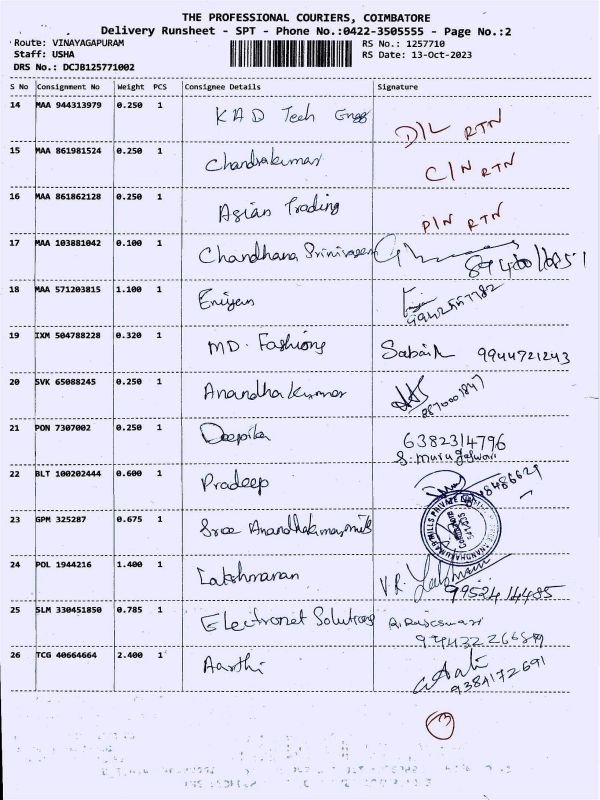 THE PROFESSIONAL COURIERS, COIMBATORE
Delivery Runsheet - SPT - Phone No.:0422-3505555 - Page No.:2
Route: VINAYAGAPURAM
Staff: USHA
DRS No.: DCJB125771002
RS No.: 1257710
RS Date: 13-Oct-2023
S No Consignment No Weight PCS Consignee Details Signature
14 MAA 944313979 0.250 1 KAD Tech Engg D/L RTN
15 MAA 861981524 0.250 1 Chandrakumar C/N RTN
16 MAA 861862128 0.250 1 Asian Trading P/N RTN
17 MAA 103881042 0.100 1 Chandhana Srinivasan
18 MAA 571203815 1.100 1 Eniyan
19 IXM 504788228 0.320 1 MD. Fashions Sabair 9944721243
20 SVK 65088245 0.250 1 Anandhakumar
21 PON 7307002 0.250 1 Deepika 6382314796
S. murugeswari
22 BLT 100202444 0.600 1 Pradeep
23 GPM 325287 0.675 1 Sree Anandhakumar mills
24 POL 1944216 1.400 1 Lakshmanan V.R. Lakshman
9952414485
25 SLM 330451850 0.785 1 Electronet Solutions R. Rajeswari
26 TCG 40664664 2.400 1 Aarthi
9384172691
3